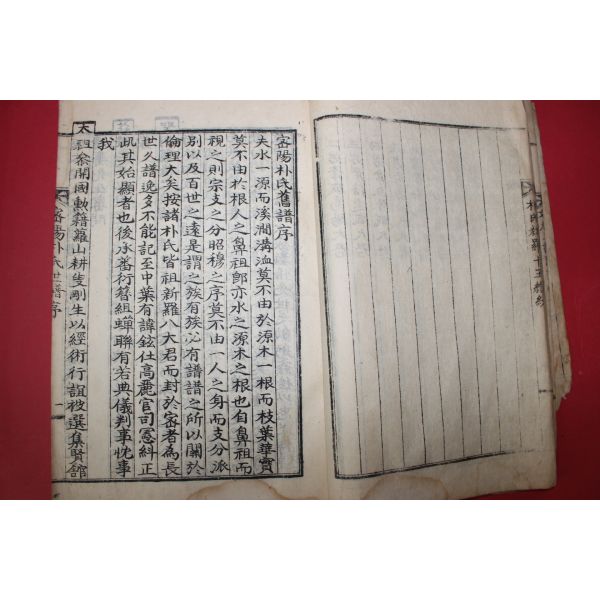 密陽朴氏舊譜序
夫水一源而溪澗溝洫莫不由於源木一根而枝葉華實
莫不由於根人之鼻祖郎亦水之源木之根也自鼻祖而
視之則宗支之分昭穆之序莫不由一人之身而支分派
別以及百世之遠是謂之族有族必有譜譜之所以關於
倫理大矣按諸朴氏皆祖新羅八大君而封於密者為長
世久譜逸多不能記至中葉有諱鉉仕高麗官司憲糾正
此其始顯者也後承蕃衍簪組蟬聯有若典儀判事忱事
我
太祖叅開國勲籍蘿山耕隻剛生以經術行誼被選集賢館
密陽朴氏世譜序
一